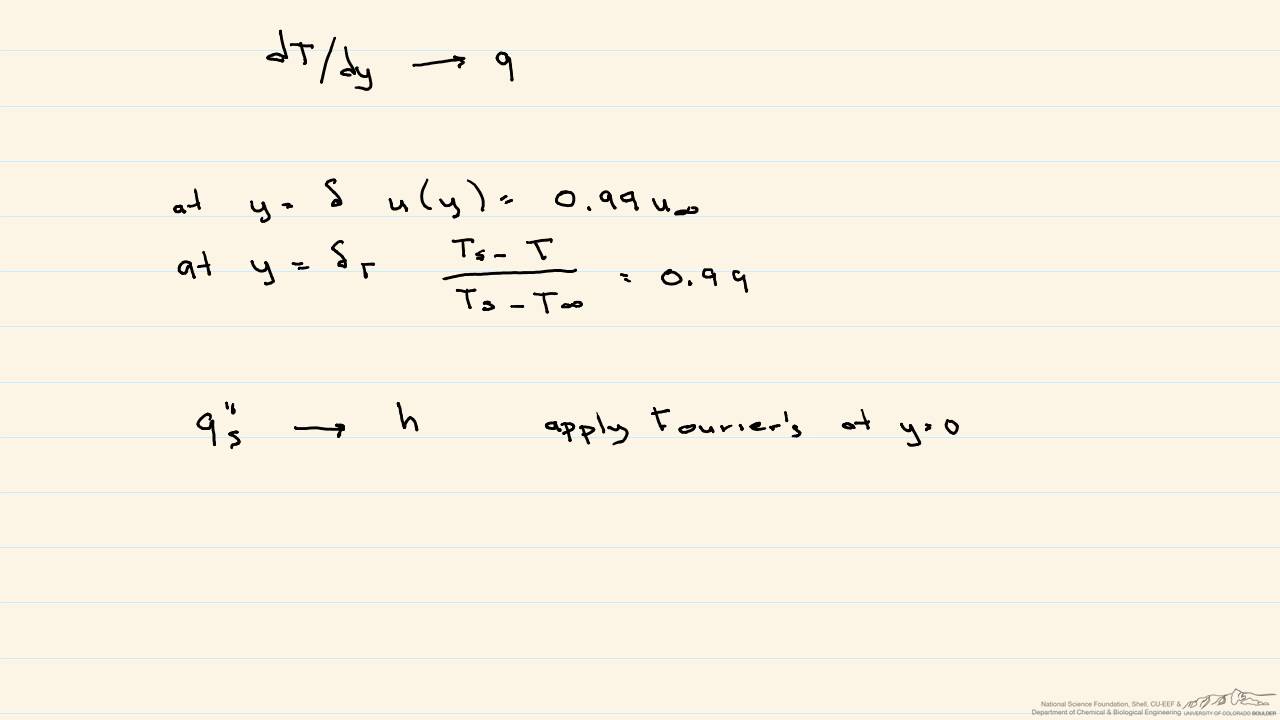 dT/dy → q
at y = δ u(y) = 0.99 u∞
at y = δT (Ts - T) / (Ts - T∞) = 0.99
q"s → h apply Fourier's at y=0
National Science Foundation, Shell, CU-EEF &
Department of Chemical & Biological Engineering UNIVERSITY OF COLORADO BOULDER